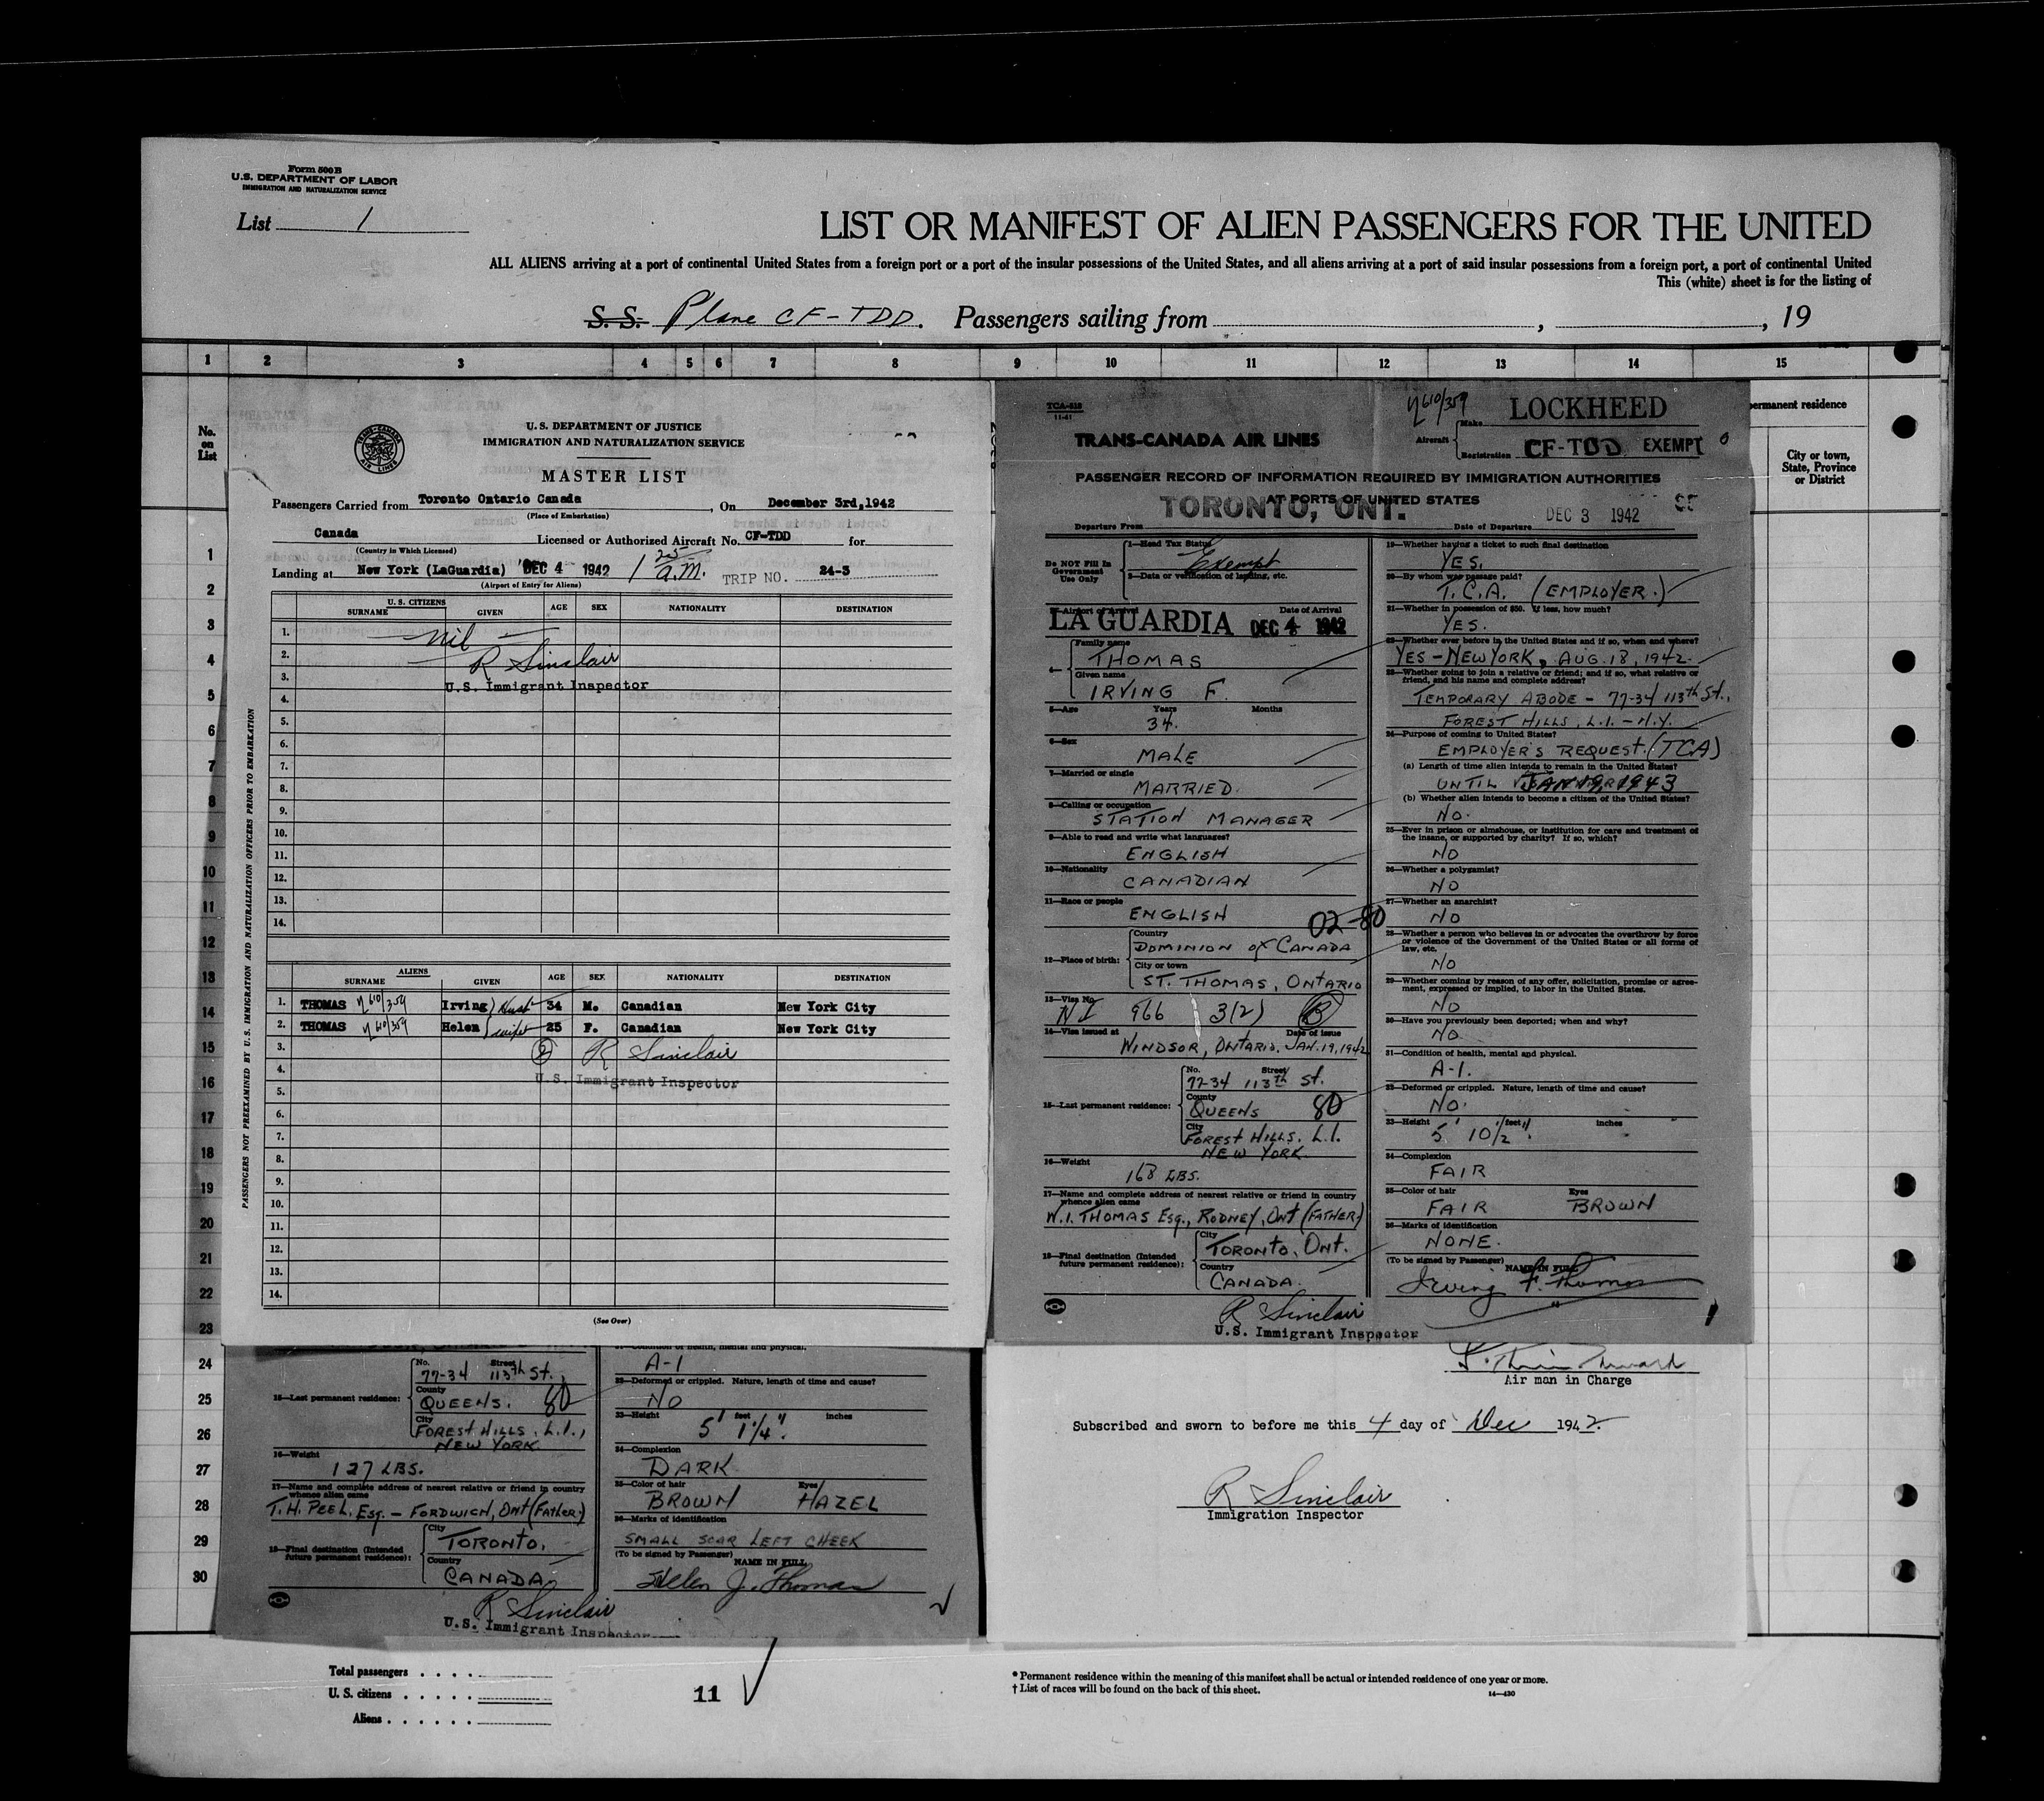 Form 500B
U.S. DEPARTMENT OF LABOR
IMMIGRATION AND NATURALIZATION SERVICE
List 1
LIST OR MANIFEST OF ALIEN PASSENGERS FOR THE UNITED
ALL ALIENS arriving at a port of continental United States from a foreign port or a port of the insular possessions of the United States, and all aliens arriving at a port of said insular possessions from a foreign port, a port of continental United
This (white) sheet is for the listing of
S. S. Plane CF-TDD. Passengers sailing from , , 19
1 2 3 4 5 6 7 8 9 10 11 12 13 14 15
No. on List
permanent residence
City or town, State, Province or District
1
2
3
4
5
6
7
8
9
10
11
12
13
14
15
16
17
18
19
20
21
22
23
24
25
26
27
28
29
30
TRANS-CANADA AIR LINES
U. S. DEPARTMENT OF JUSTICE
IMMIGRATION AND NATURALIZATION SERVICE
MASTER LIST
Passengers Carried from Toronto Ontario Canada, On December 3rd,1942
(Place of Embarkation)
Canada Licensed or Authorized Aircraft No. CF-TDD for
(Country in Which Licensed)
Landing at New York (LaGuardia) DEC 4 1942 1 25 a.m. TRIP NO. 24-3
(Airport of Entry for Aliens)
PASSENGERS NOT PREEXAMINED BY U. S. IMMIGRATION AND NATURALIZATION OFFICERS PRIOR TO EMBARKATION
U. S. CITIZENS
SURNAME GIVEN AGE SEX NATIONALITY DESTINATION
1. nil
2. R Sinclair
3. U.S. Immigrant Inspector
4.
5.
6.
7.
8.
9.
10.
11.
12.
13.
14.
ALIENS
SURNAME GIVEN AGE SEX NATIONALITY DESTINATION
1. THOMAS 610/359 Irving Husb 34 M. Canadian New York City
2. THOMAS 610/359 Helen wife 25 F. Canadian New York City
3. 2 R Sinclair
4. U.S. Immigrant Inspector
5.
6.
7.
8.
9.
10.
11.
12.
13.
14.
(See Over)
TCA-518
11-41
610/359
LOCKHEED
Make
Aircraft
Registration CF-TDD EXEMPT
TRANS-CANADA AIR LINES
PASSENGER RECORD OF INFORMATION REQUIRED BY IMMIGRATION AUTHORITIES
AT PORTS OF UNITED STATES
Departure From TORONTO, ONT.
Date of Departure DEC 3 1942
Do NOT Fill In Government Use Only
1—Head Tax Status
Exempt
2—Data or verification of landing, etc.
3—Airport of Arrival Date of Arrival
LA GUARDIA DEC 4 1942
4— Family name
THOMAS
Given name
IRVING F.
5—Age Years Months
34.
6—Sex
MALE
7—Married or single
MARRIED
8—Calling or occupation
STATION MANAGER
9—Able to read and write what languages?
ENGLISH
10—Nationality
CANADIAN
11—Race or people
ENGLISH
02-80
12—Place of birth: Country
DOMINION OF CANADA
City or town
ST. THOMAS, ONTARIO
13—Visa No.
NI 966 3(2) B
14—Visa issued at Date of issue
WINDSOR, ONTARIO. JAN. 19, 1942
15—Last permanent residence: No. Street
77-34 113th St.
County
QUEENS 80
City
FOREST HILLS. L.I.
NEW YORK.
16—Weight
168 LBS.
17—Name and complete address of nearest relative or friend in country whence alien came
W.I. THOMAS Esq., RODNEY, ONT (FATHER)
18—Final destination (Intended future permanent residence): City
TORONTO, ONT.
Country
CANADA.
R Sinclair
U.S. Immigrant Inspector
19—Whether having a ticket to such final destination
YES.
20—By whom was passage paid?
T.C.A. (EMPLOYER.)
21—Whether in possession of $50. If less, how much?
YES.
22—Whether ever before in the United States and if so, when and where?
YES - NEW YORK, AUG. 18, 1942.
23—Whether going to join a relative or friend; and if so, what relative or friend, and his name and complete address?
TEMPORARY ABODE - 77-34 113th St.,
FOREST HILLS, L.I. - N.Y.
24—Purpose of coming to United States?
EMPLOYER'S REQUEST. (TCA)
(a) Length of time alien intends to remain in the United States?
UNTIL JAN 19, 1943
(b) Whether alien intends to become a citizen of the United States?
NO.
25—Ever in prison or almshouse, or institution for care and treatment of the insane, or supported by charity? If so, which?
NO
26—Whether a polygamist?
NO
27—Whether an anarchist?
NO
28—Whether a person who believes in or advocates the overthrow by force or violence of the Government of the United States or all forms of law, etc.
NO
29—Whether coming by reason of any offer, solicitation, promise or agreement, expressed or implied, to labor in the United States.
NO
30—Have you previously been deported; when and why?
NO
31—Condition of health, mental and physical.
A-1.
32—Deformed or crippled. Nature, length of time and cause?
NO.
33—Height feet inches
5' 10 1/2".
34—Complexion
FAIR
35—Color of hair Eyes
FAIR BROWN
36—Marks of identification
NONE.
(To be signed by Passenger) NAME IN FULL
Irving F. Thomas
No. Street
77-34 113th St.,
15—Last permanent residence: County
QUEENS. 80
City
FOREST HILLS. L.I.,
NEW YORK
16—Weight
127 LBS.
17—Name and complete address of nearest relative or friend in country whence alien came
T.H. PEEL. Esq. - FORDWICH, ONT (FATHER)
18—Final destination (Intended future permanent residence): City
TORONTO.
Country
CANADA
R Sinclair
U.S. Immigrant Inspector
31—Condition of health, mental and physical.
A-1
32—Deformed or crippled. Nature, length of time and cause?
NO
33—Height feet inches
5' 1 1/4".
34—Complexion
DARK
35—Color of hair Eyes
BROWN HAZEL
36—Marks of identification
SMALL SCAR LEFT CHEEK
(To be signed by Passenger) NAME IN FULL
Helen J. Thomas
Air man in Charge
Subscribed and sworn to before me this 4 day of Dec 1942.
R Sinclair
Immigration Inspector
Total passengers . . . .
U. S. citizens . . . . .
Aliens . . . . . .
11
* Permanent residence within the meaning of this manifest shall be actual or intended residence of one year or more.
† List of races will be found on the back of this sheet.
14—430